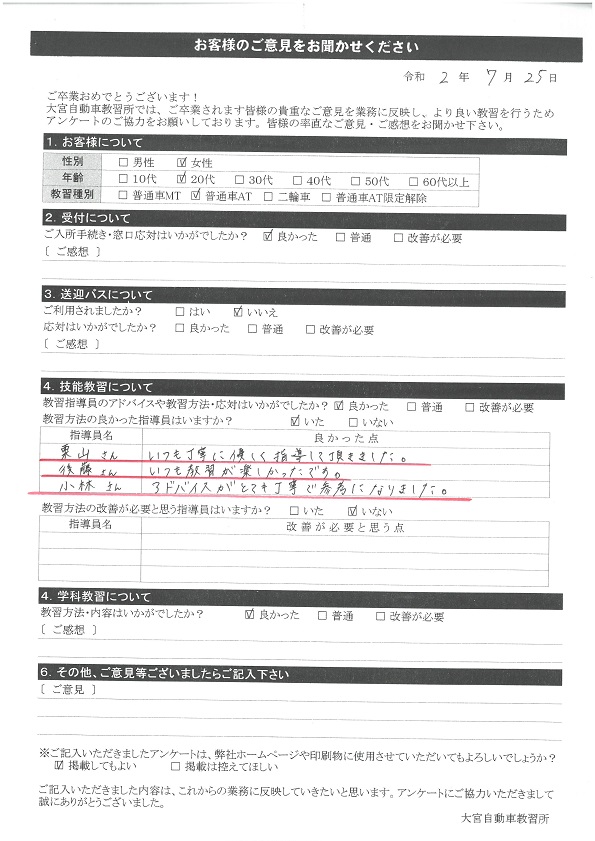 お客様のご意見をお聞かせください
令和 2 年 7 月 25 日
ご卒業おめでとうございます！
大宮自動車教習所では、ご卒業されます皆様の貴重なご意見を業務に反映し、より良い教習を行うため
アンケートのご協力をお願いしております。皆様の率直なご意見・ご感想をお聞かせ下さい。
1. お客様について
性別 □ 男性 ☑ 女性
年齢 □ 10代 ☑ 20代 □ 30代 □ 40代 □ 50代 □ 60代以上
教習種別 □ 普通車MT ☑ 普通車AT □ 二輪車 □ 普通車AT限定解除
2. 受付について
ご入所手続き・窓口応対はいかがでしたか？ ☑ 良かった □ 普通 □ 改善が必要
〔 ご感想 〕
3. 送迎バスについて
ご利用されましたか？ □ はい ☑ いいえ
応対はいかがでしたか？ □ 良かった □ 普通 □ 改善が必要
〔 ご感想 〕
4. 技能教習について
教習指導員のアドバイスや教習方法・応対はいかがでしたか？ ☑ 良かった □ 普通 □ 改善が必要
教習方法の良かった指導員はいますか？ ☑ いた □ いない
指導員名 良かった点
栗山さん いつも丁寧に優しく指導して頂きました。
後藤さん いつも教習が楽しかったです。
小林さん アドバイスがとても丁寧で参考になりました。
教習方法の改善が必要と思う指導員はいますか？ □ いた ☑ いない
指導員名 改善が必要と思う点
4. 学科教習について
教習方法・内容はいかがでしたか？ ☑ 良かった □ 普通 □ 改善が必要
〔 ご感想 〕
6. その他、ご意見等ございましたらご記入下さい
〔 ご意見 〕
※ご記入いただきましたアンケートは、弊社ホームページや印刷物に使用させていただいてもよろしいでしょうか？
☑ 掲載してもよい □ 掲載は控えてほしい
ご記入いただきました内容は、これからの業務に反映していきたいと思います。アンケートにご協力いただきまして
誠にありがとうございました。
大宮自動車教習所